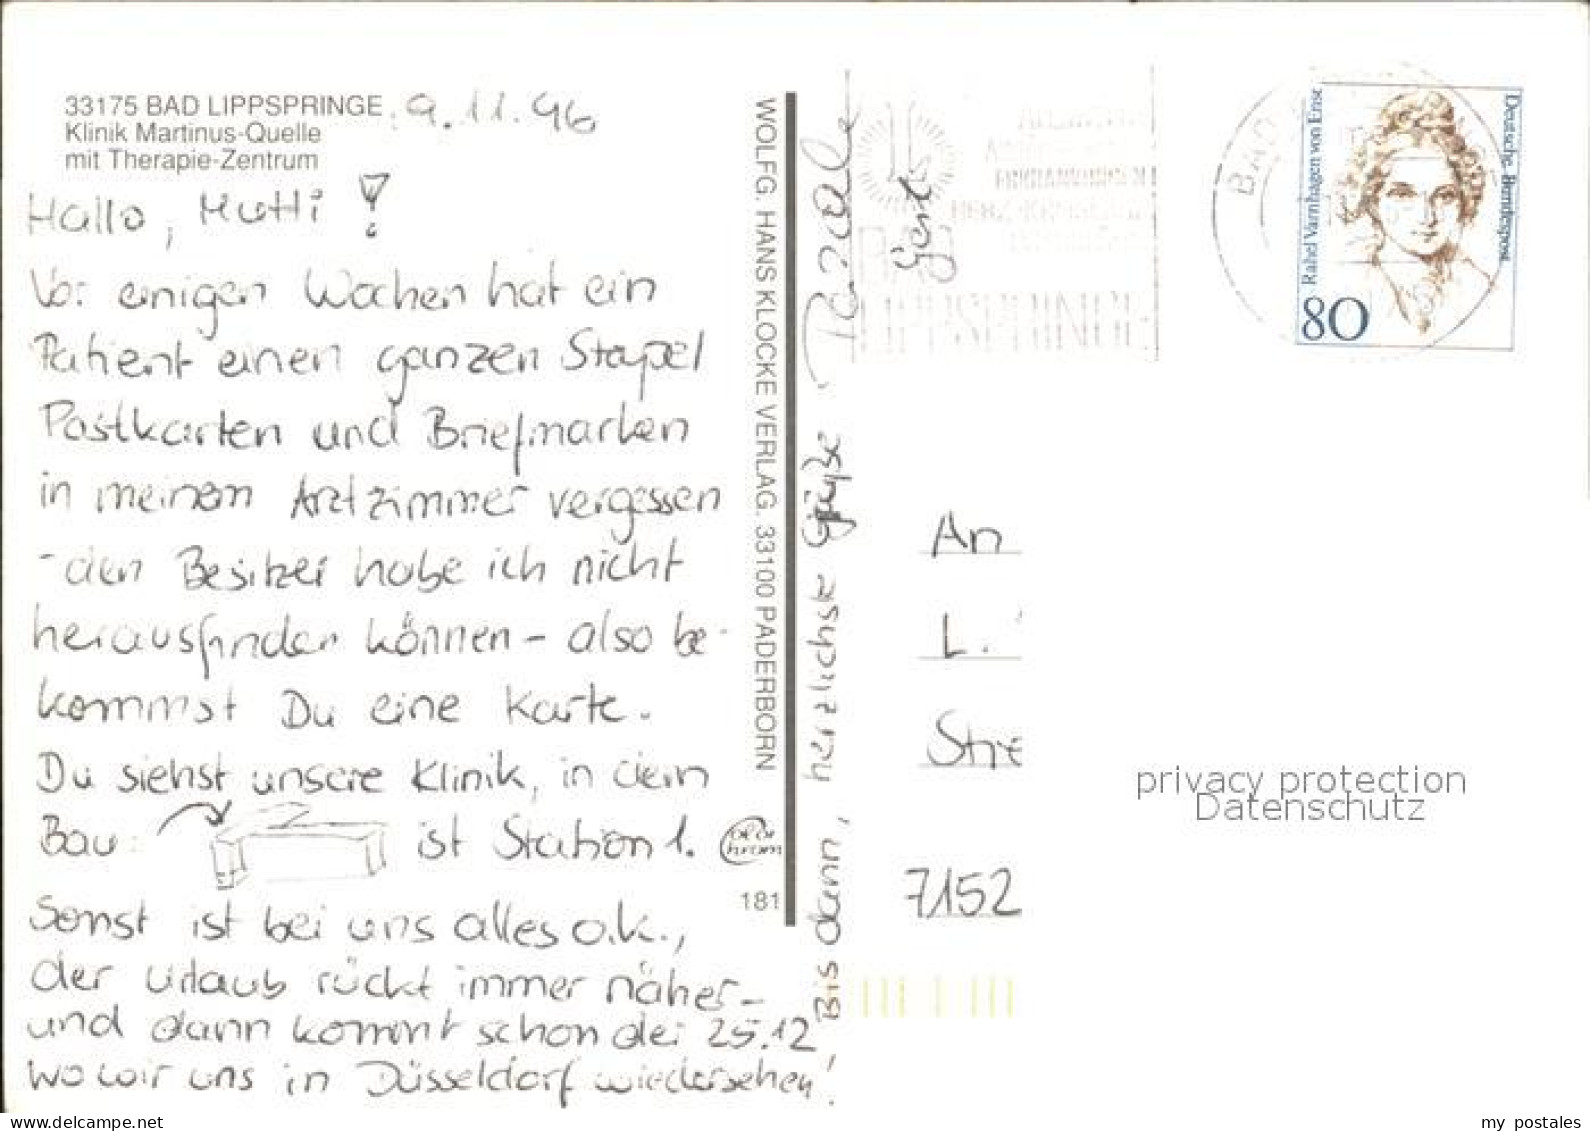 33175 BAD LIPPSPRINGE
Klinik Martinus-Quelle
mit Therapie-Zentrum
9.11.96
Hallo, Mutti!
Vor einigen Wochen hat ein
Patient einen ganzen Stapel
Postkarten und Briefmarken
in meinem Arztzimmer vergessen
- den Besitzer habe ich nicht
herausfinden können - also be-
kommst Du eine Karte.
Du siehst unsere Klinik, in dem
Bau: ist Station 1.
Sonst ist bei uns alles o.k.,
der Urlaub rückt immer näher -
und dann kommt schon der 25.12,
wo wir uns in Düsseldorf wiedersehen!
Bis dann, herzlichste Grüße,
WOLFG. HANS KLOCKE VERLAG. 33100 PADERBORN
181
LIPPSPRINGE
BAD
Deutsche Bundespost
Rahel Varnhagen von Ense
80
An
L.
Stre
7152
privacy protection
Datenschutz
www.delcampe.net
my_postales